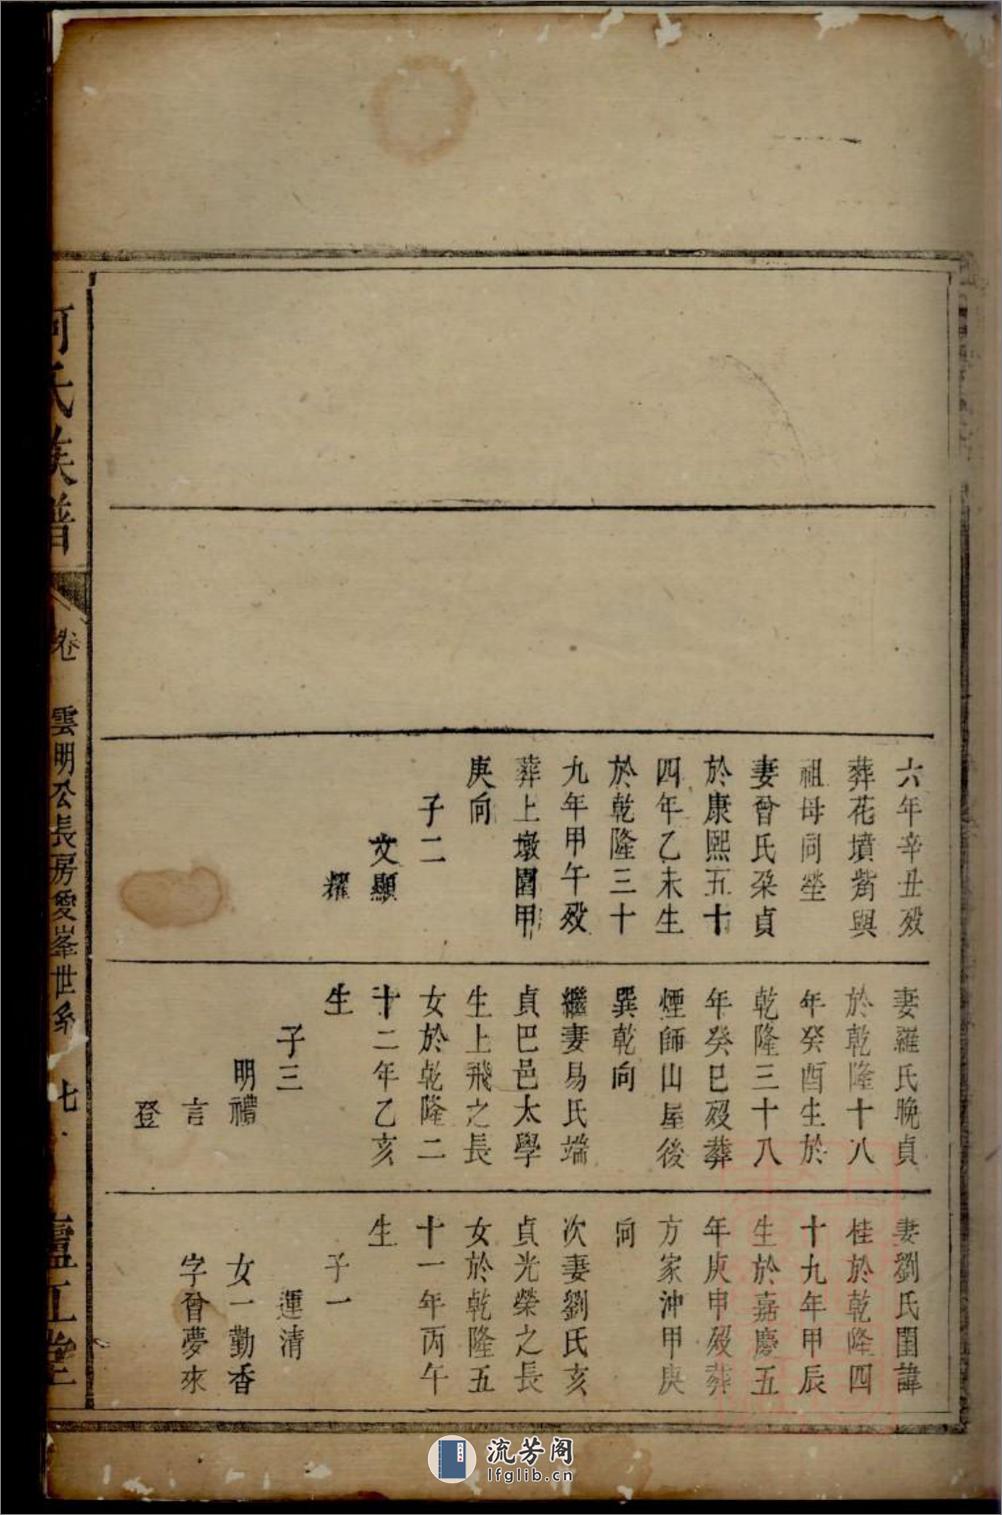 六年辛丑歿
葬花墳觜與
祖母同塋
妻曾氏朶貞
於康熙五十
四年乙未生
於乾隆三十
九年甲午歿
葬上墩園甲
庚向
子二
文顯
耀
妻羅氏晚貞
於乾隆十八
年癸酉生於
乾隆三十八
年癸巳歿葬
煙師山屋後
巽乾向
繼妻易氏端
貞巴邑太學
生上飛之長
女於乾隆二
十二年乙亥
生
子三
明禮
言
登
妻劉氏閨諱
桂於乾隆四
十九年甲辰
生於嘉慶五
年庚申歿葬
方家沖甲庚
向
次妻劉氏亥
貞光榮之長
女於乾隆五
十一年丙午
生
子一
運清
女一勤香
字曾夢來
何氏族譜
卷
雲明公長房愛峯世系
七
廬江堂
流芳阁
lfglib.cn